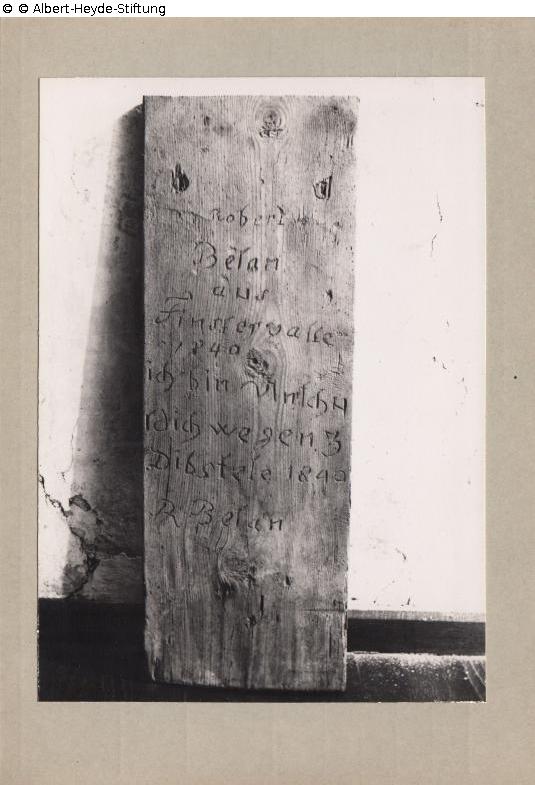 © © Albert-Heyde-Stiftung
Robert
Belan
aus
Finstervalle
1840
ich bin Vnschu
ldich wegen 3
Dibstele 1840
R Belan